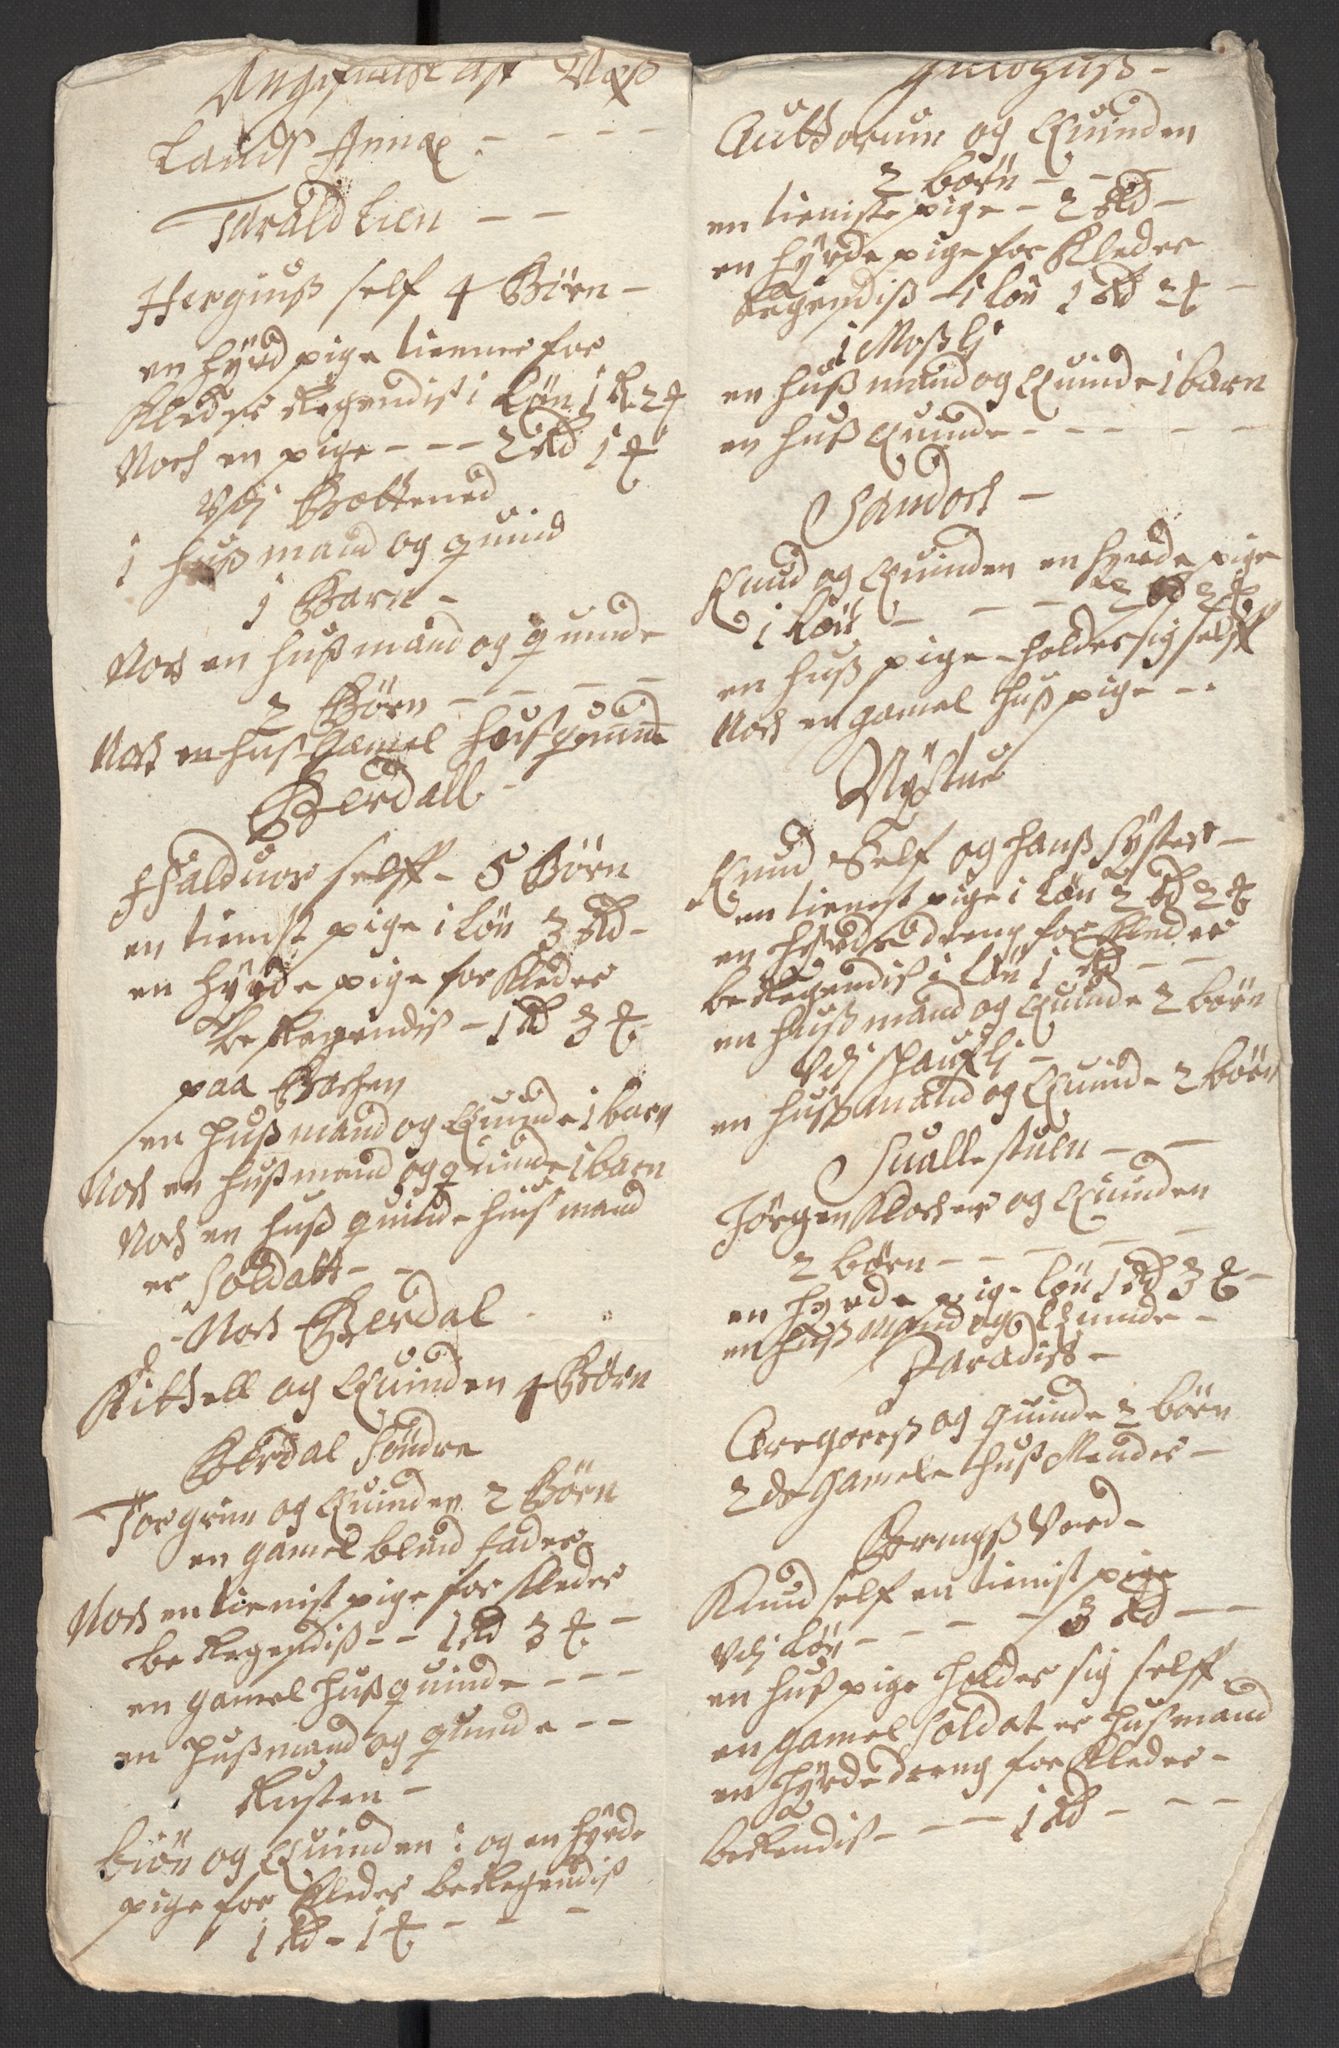 Angifuelse aff Næs
Lands Annex - - - -
Tarald Lien - -
Hergiuß self 4 Börn -
en hyrd pige tienner for
Kleder Regendis i Lön 1 Rd 2 ꝉ
Noch en pige - - - 2 Rd 1 ꝉ
Vdj Bottened
1 Hußmand og quind
1 Barn -
Noch en hußmand og quinde
2 Börn - - - -
Noch en huß Gamel huß quinde
Berdall -
Halduor selff - 5 Börn
en tienist pige i lön 3 Rd -
en hyrde pige for Kleder
beRegendis - 1 Rd 3 ꝉ
paa Bachen
en hußmand og Quinde 1 barn
Noch en hußmand og quinde 1 barn
Noch en huß quinde huißmand
er Soldatt - -
- Noch Berdal -
Kittell og Quinden 4 Börn
Berdal Söndre
Torgrim og Quinden 2 Börn
en gamel blind fader
Noch en tienist pige for Kleder
beRegendiß - - 1 Rd 3 ꝉ -
en gamel hußquinde - - -
en hußmand og quinde - -
Rusten -
biön og Quinden : og en hyrde
pige for Kleder beRegendiß
1 Rd - 1 ꝉ - - -
Guldhuß -
Guttorum og Quinden
2 börn - - -
en tieniste pige - 2 Rd -
en hyrde pige for Kleder
Regendiß - i lön 1 Rd 2 ꝉ -
i Moßlj
en hußmand og Quinde 1 barn
en huß Quinde - - - - -
Sandoch -
Knud og Quinden en hyrde pige
i lön - - - 2 Rd 2 ꝉ
en huß pige - holder sig selff
Noch en gamel huß pige - -
Nystue
Knud Self og hans Syster -
en tienist pige i lön 2 Rd 2 ꝉ
en hyrde dreng for Kleder
beRegendis i lön 1 Rd - -
en hußmand og Quinde 2 börn
Vdj
en hußmand og Quinde 2 börn
Suallestuen - -
Jörgen Klocher og Quinden
2 börn - - - - -
en hyrde pige lön 1 Rd 3 ꝉ -
en hußmand og Quinde -
Paradiß -
Gregoerß og quinde 2 börn
2 de gamele huß Mender -
Bringß Verd -
Knud self en tienist pige
Vdj lön - - - - 3 Rd - -
en huß pige holder sig selff
en gamel Soldat er hußmand
en hyrde dreng for Kleder -
beRendis - - - 1 Rd - - -